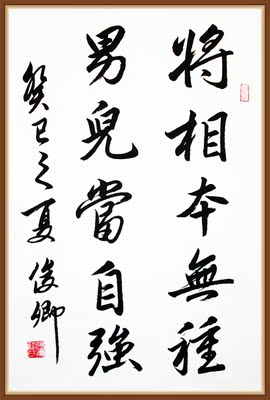 將相本無種
男兒當自強
癸巳之夏俊卿